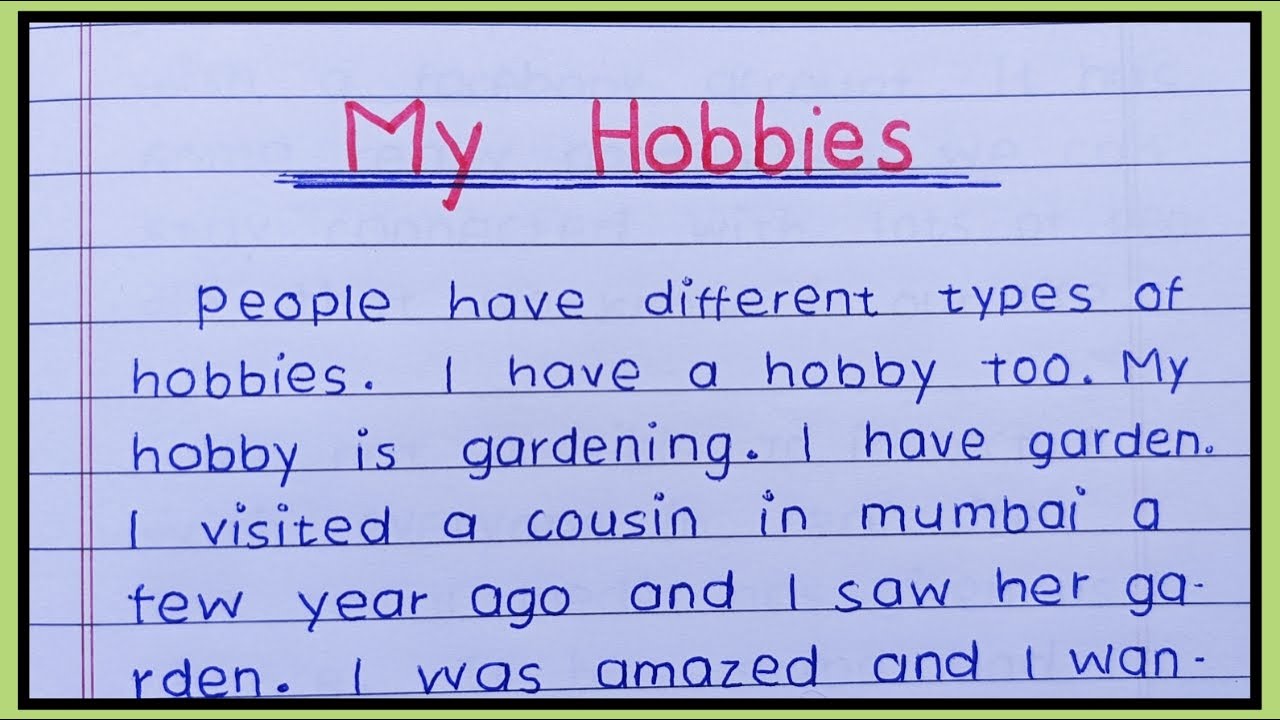 My Hobbies
People have different types of
hobbies. I have a hobby too. My
hobby is gardening. I have garden.
I visited a cousin in mumbai a
few year ago and I saw her ga-
rden. I was amazed and I wan-